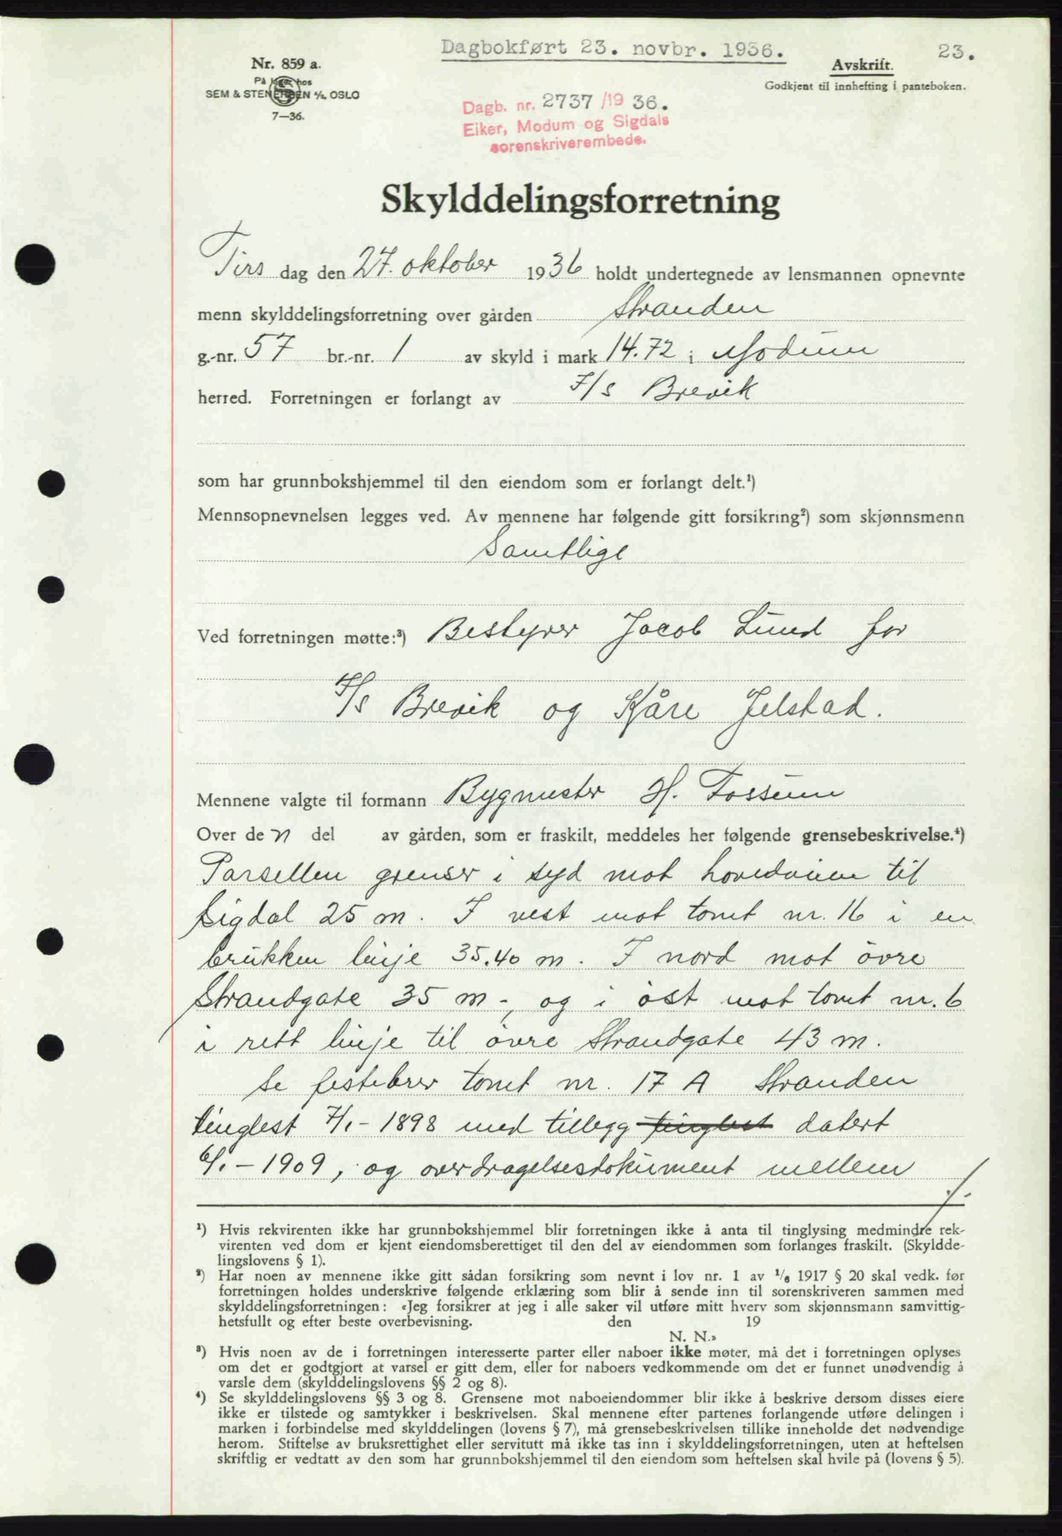 Dagbokført 23. novbr. 1936.
23.
Nr. 859 a.
På lager hos
SEM & STENERSEN A/S, OSLO
7—36.
Avskrift.
Godkjent til innhefting i panteboken.
Dagb. nr. 2737/1936.
Eiker, Modum og Sigdals
sorenskriverembede.
Skylddelingsforretning
Tirs dag den 27. oktober 1936 holdt undertegnede av lensmannen opnevnte
menn skylddelingsforretning over gården Stranden
g.-nr. 57 br.-nr. 1 av skyld i mark 14.72 i Modum
herred. Forretningen er forlangt av I/S Brevik
som har grunnbokshjemmel til den eiendom som er forlangt delt.¹)
Mennsopnevnelsen legges ved. Av mennene har følgende gitt forsikring²) som skjønnsmenn
Samtlige
Ved forretningen møtte:³) Bestyrer Jacob Lund for
I/S Brevik og Kåre Jelstad.
Mennene valgte til formann Bygmester H. Fossum
Over den del av gården, som er fraskilt, meddeles her følgende grensebeskrivelse.⁴)
Parsellen grenser i syd mot hovedveien til
Sigdal 25 m. I vest mot tomt nr. 16 i en
brukken linje 35.40 m. I nord mot övre
Strandgate 35 m., og i öst mot tomt nr. 6
i rett linje til övre Strandgate 43 m.
Se festebrev tomt nr. 17 A Stranden
tinglest 7/1-1898 med tillegg tinglest datert
6/1-1909, og overdragelsesdokument mellem
./.
¹) Hvis rekvirenten ikke har grunnbokshjemmel blir forretningen ikke å anta til tinglysing medmindre rek-
virenten ved dom er kjent eiendomsberettiget til den del av eiendommen som forlanges fraskilt. (Skyldde-
lingslovens § 1).
²) Har noen av mennene ikke gitt sådan forsikring som nevnt i lov nr. 1 av ¹/₆ 1917 § 20 skal vedk. før
forretningen holdes underskrive følgende erklæring som blir å sende inn til sorenskriveren sammen med
skylddelingsforretningen: «Jeg forsikrer at jeg i alle saker vil utføre mitt hverv som skjønnsmann samvittig-
hetsfullt og efter beste overbevisning. den 19
N. N.»
³) Hvis noen av de i forretningen interesserte parter eller naboer ikke møter, må det i forretningen oplyses
om det er godtgjort at varsel er gitt dem, eller for naboers vedkommende om det er funnet unødvendig å
varsle dem (skylddelingslovens §§ 2 og 8).
⁴) Se skylddelingslovens §§ 3 og 8. Grensene mot naboeiendommer blir ikke å beskrive dersom disses eiere
ikke er tilstede og samtykker i beskrivelsen. Skal mennene efter partenes forlangende utføre delingen i
marken i forbindelse med skylddelingen (lovens § 7), må grensebeskrivelsen tillike inneholde det nødvendige
herom. Stiftelse av bruksrettighet eller servitutt må ikke tas inn i skylddelingsforretningen, uten at heftelsen
skriftlig er vedtatt av den som har grunnbokshjemmel til den eiendom som heftelsen skal hvile på (lovens § 5).